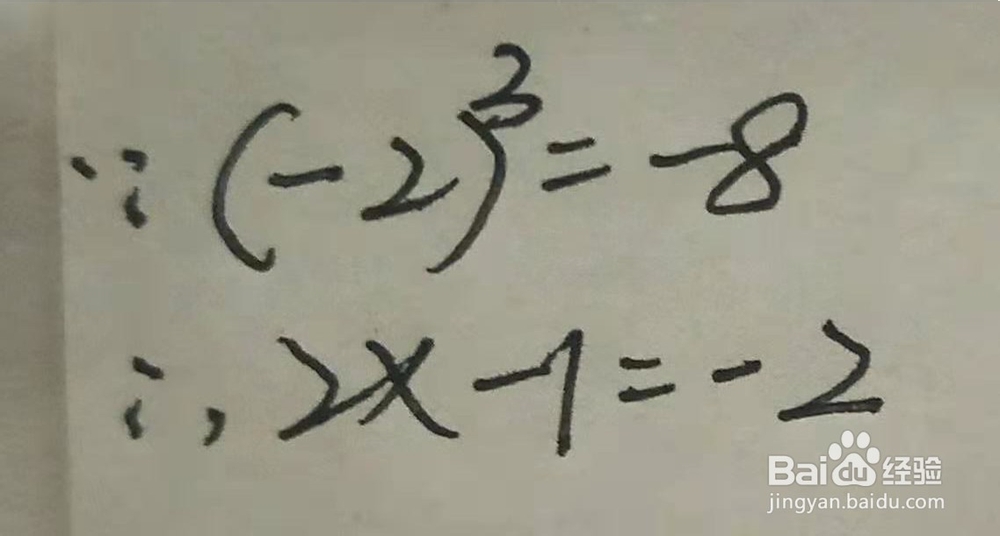 ∵ (-2)³ = -8
∴ 2x - 1 = - 2
Baidu经验
jingyan.baidu.com